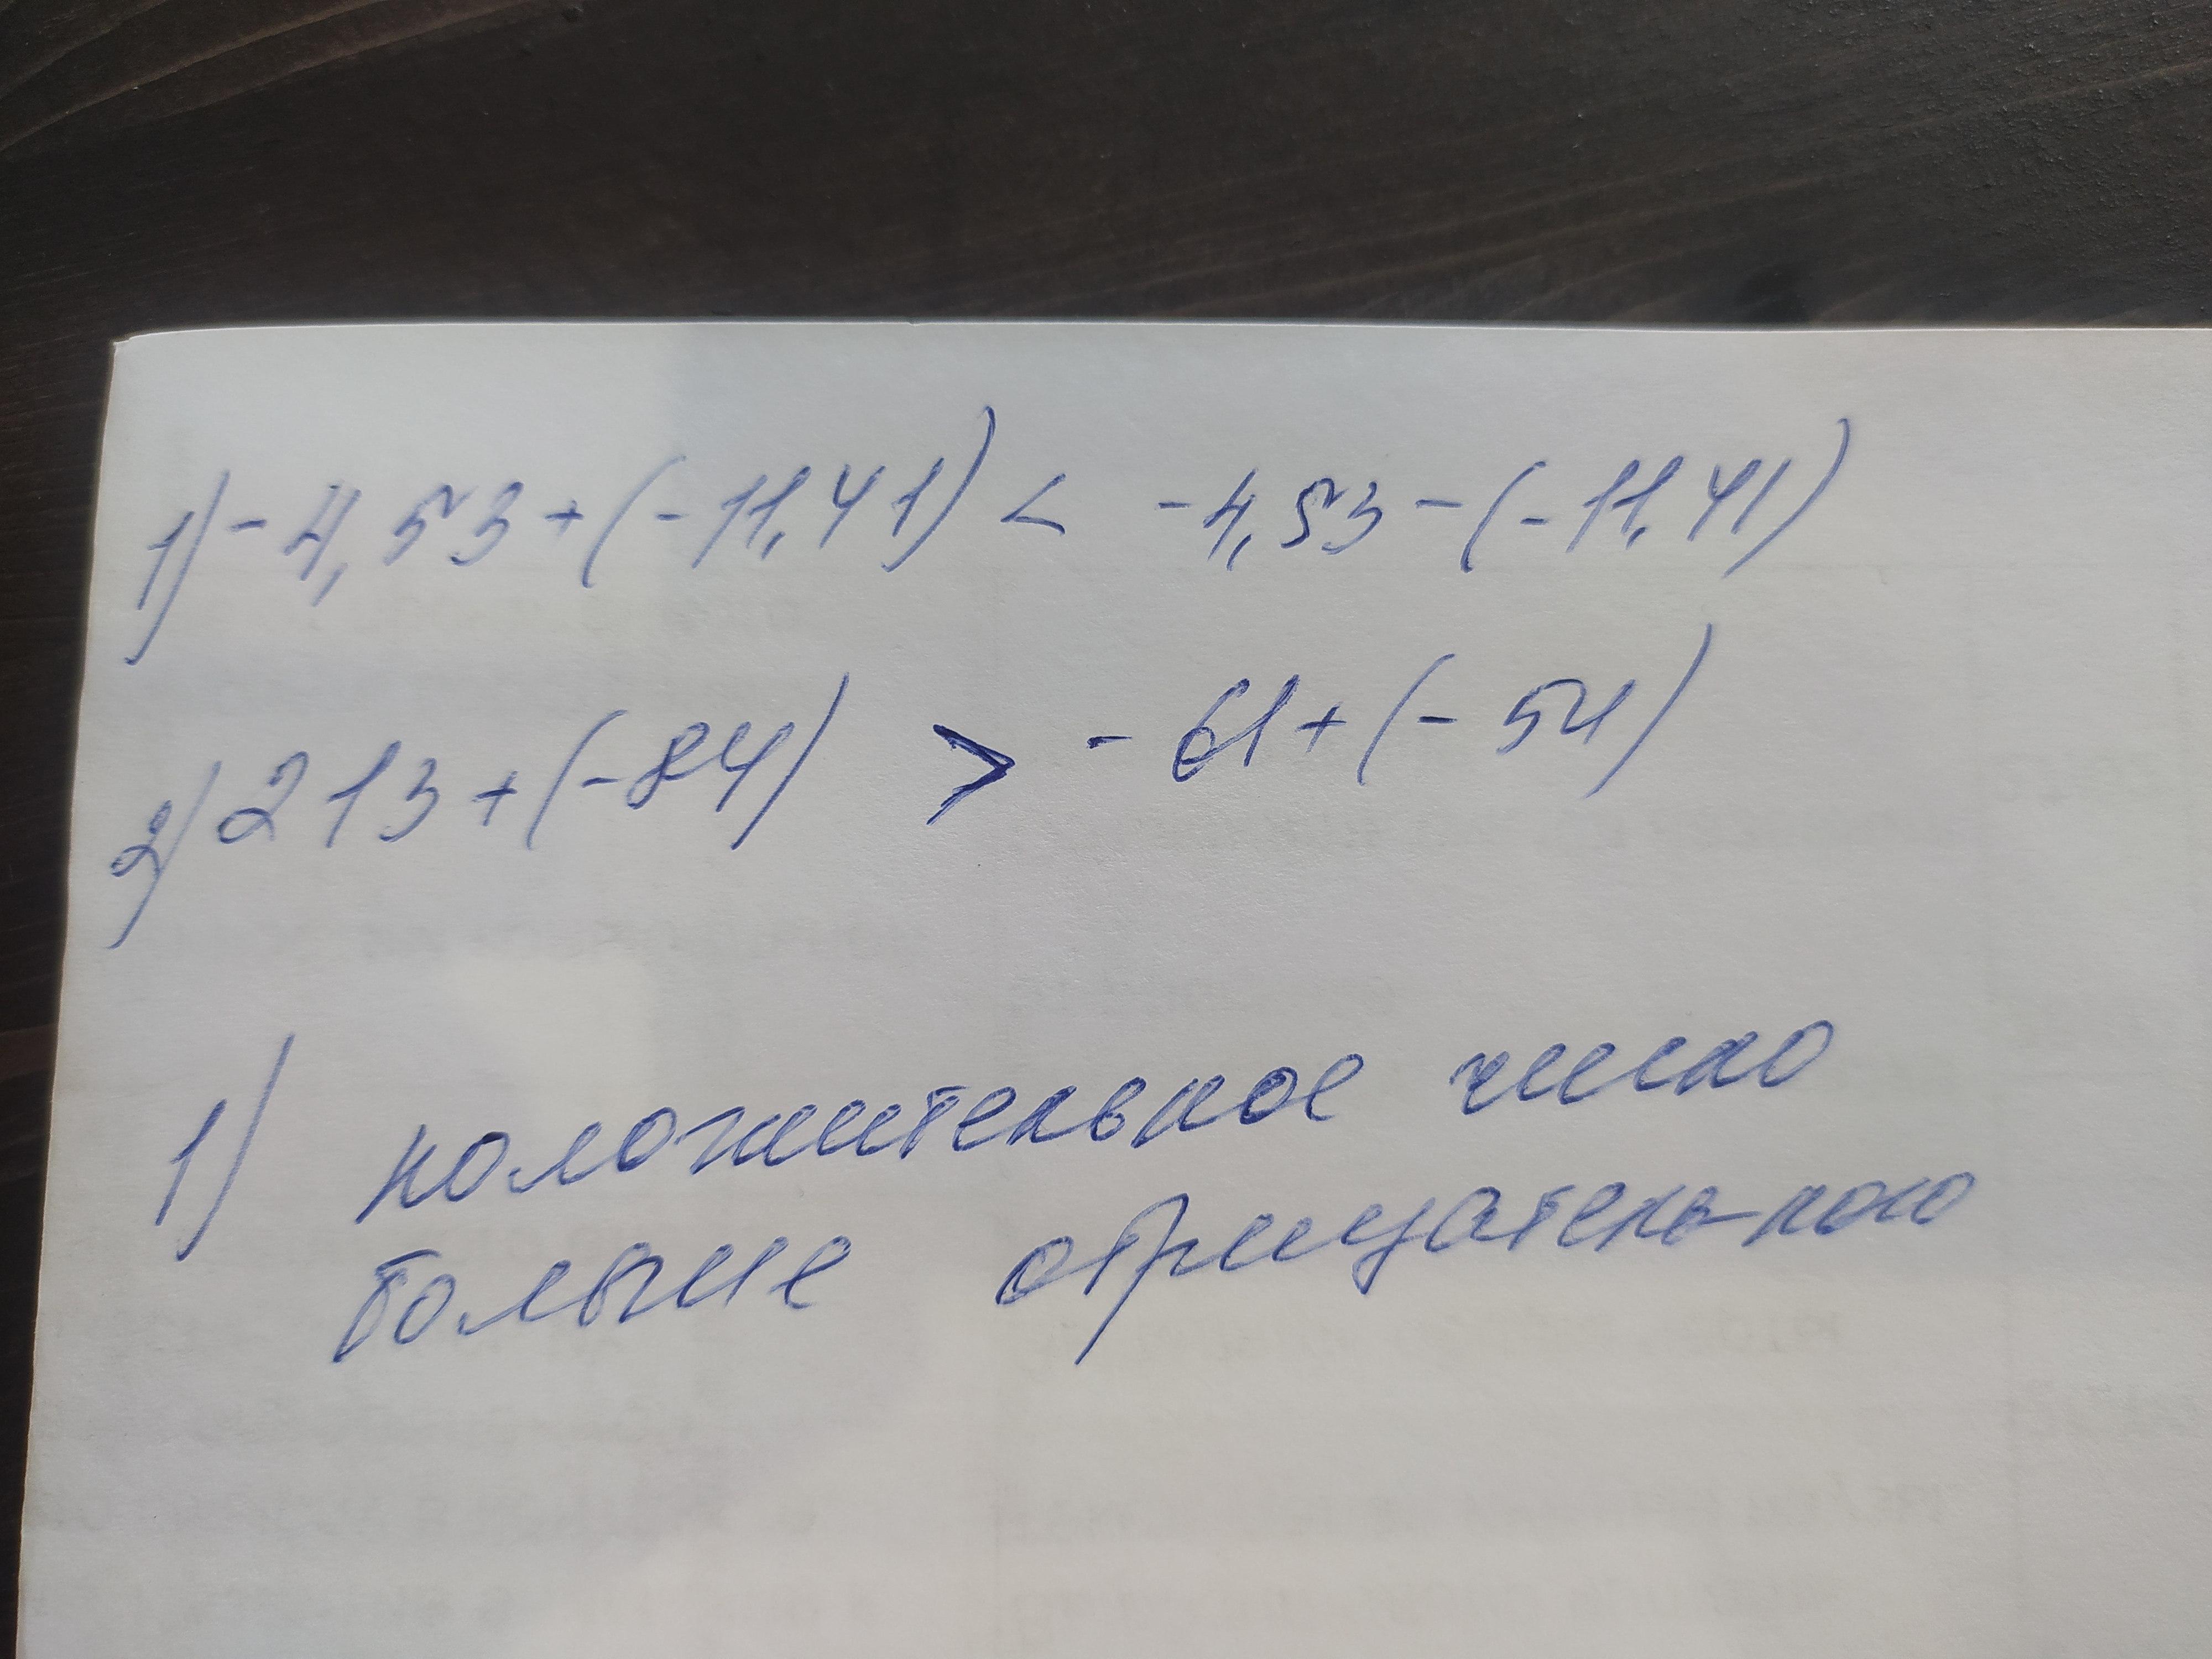 1) -4,53+(-11,41) < -4,53-(-11,41)
2) 213+(-84) > -61+(-54)
1) положительное число
больше отрицательного